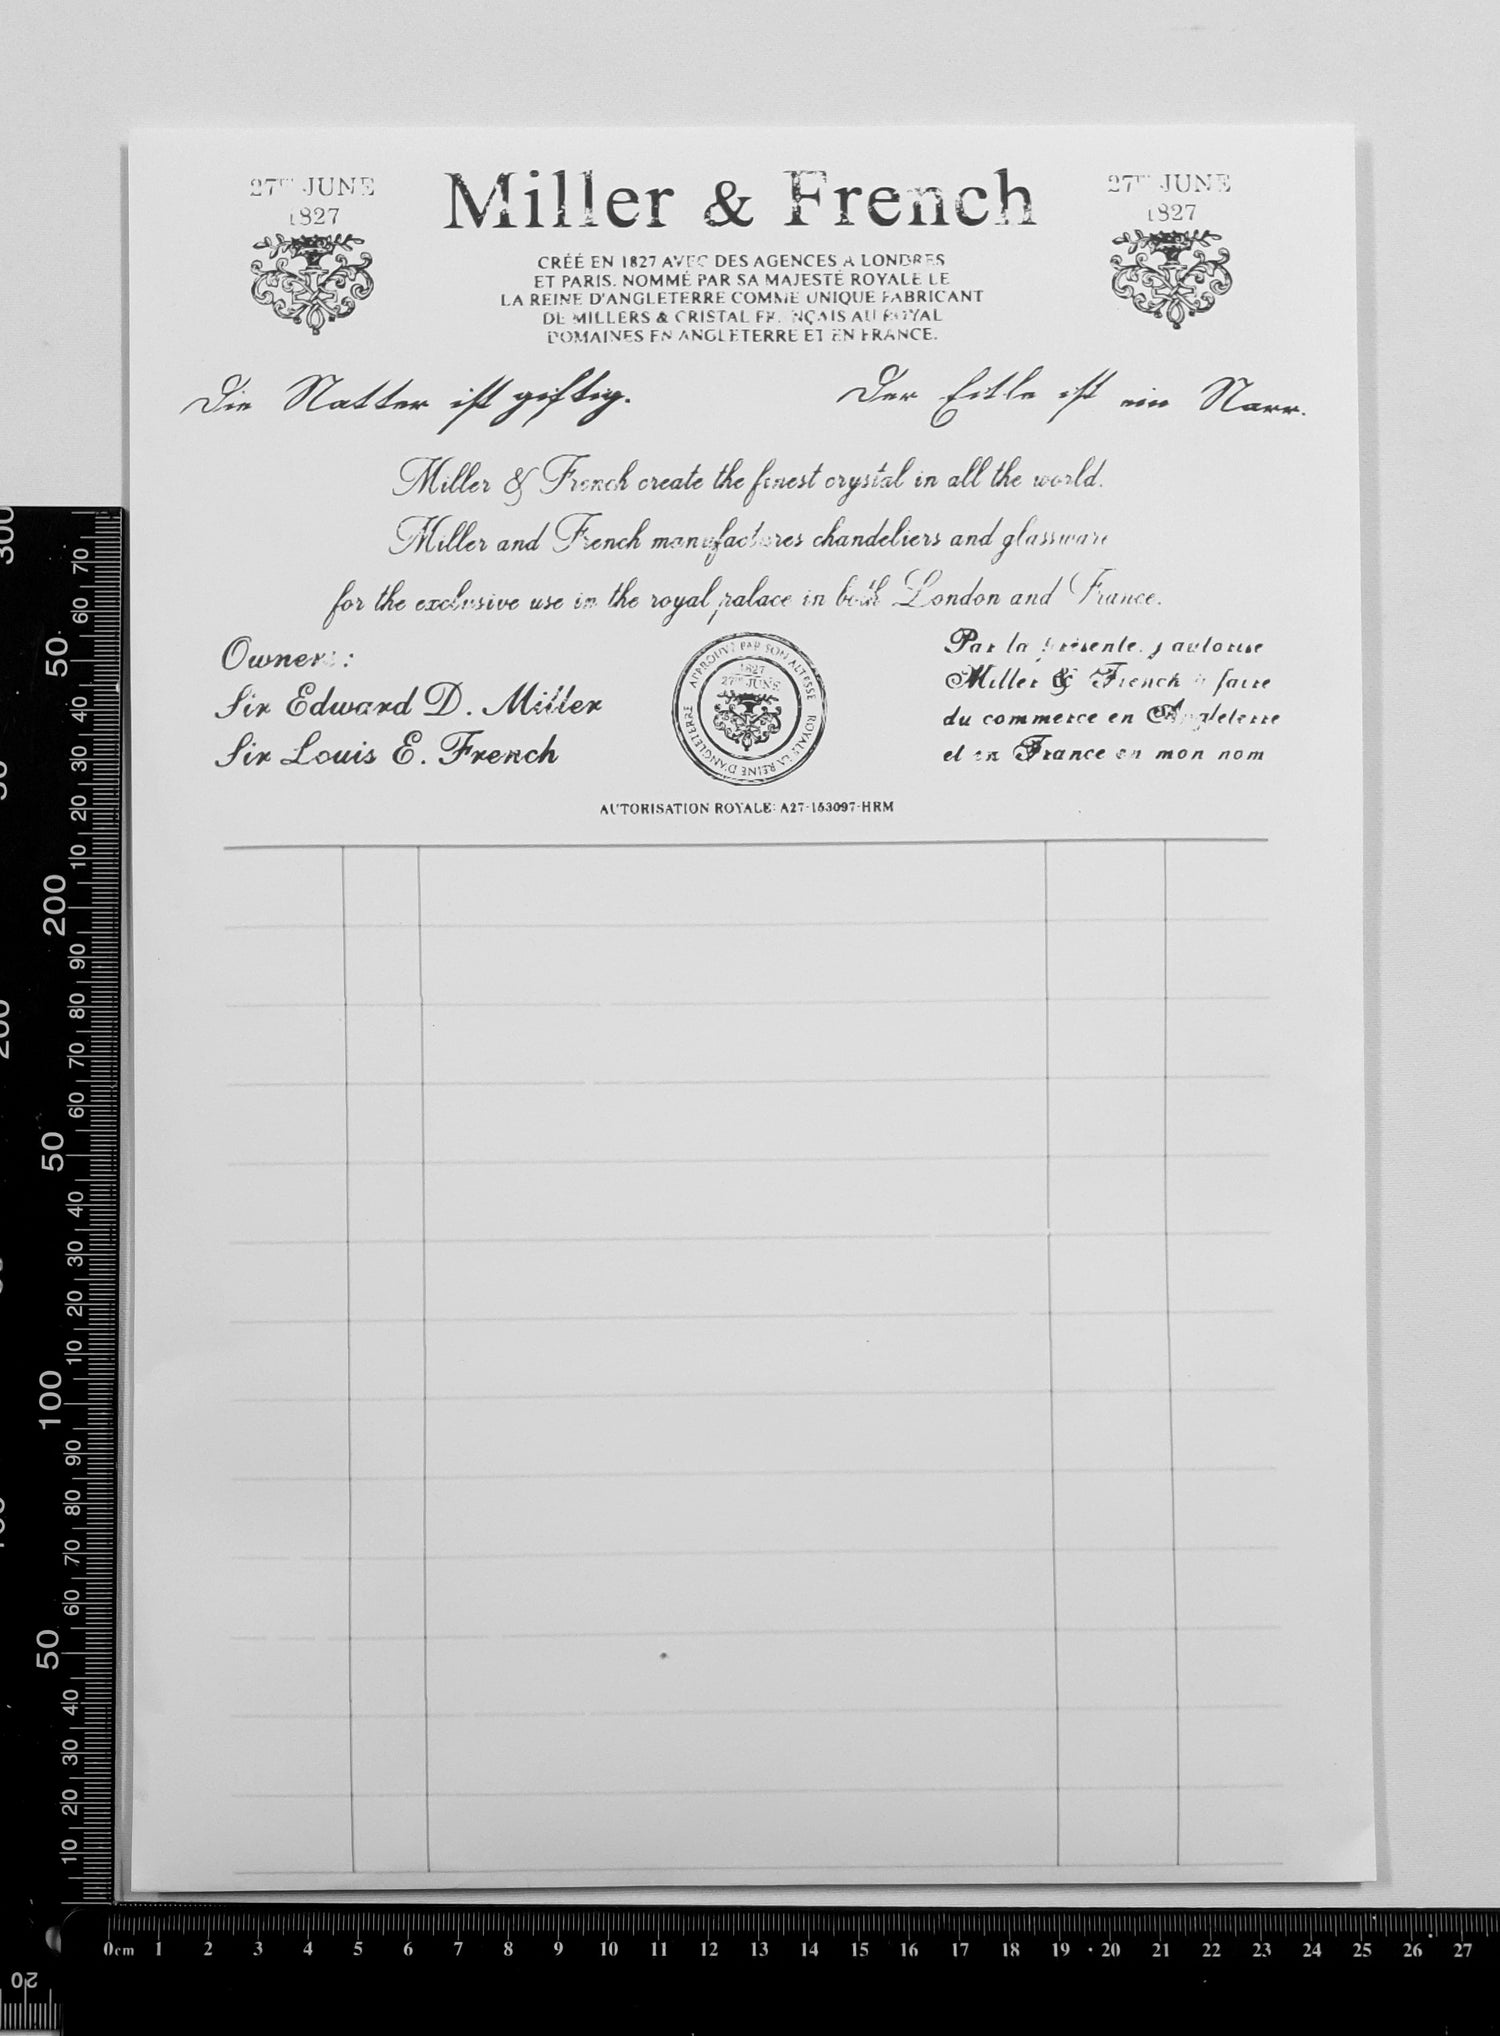 27TH JUNE
1827
Miller & French
27TH JUNE
1827
CRÉÉ EN 1827 AVEC DES AGENCES A LONDRES
ET PARIS. NOMMÉ PAR SA MAJESTÉ ROYALE LE
LA REINE D'ANGLETERRE COMME UNIQUE FABRICANT
DE MILLERS & CRISTAL FRANÇAIS AU ROYAL
DOMAINES EN ANGLETERRE ET EN FRANCE.
Die Natter ist giftig.
Der Eitle ist ein Narr.
Miller & French create the finest crystal in all the world.
Miller and French manufactures chandeliers and glassware
for the exclusive use in the royal palace in both London and France.
Owners:
Sir Edward D. Miller
Sir Louis E. French
APPROUVÉ PAR SON ALTESSE ROYALE LA REINE D'ANGLETERRE
1827
27TH JUNE
Par la présente, j'autorise
Miller & French à faire
du commerce en Angleterre
et en France en mon nom
AUTORISATION ROYALE: A27-153097-HRM
300
70
60
50
40
30
20
10
200
90
80
70
60
50
40
30
20
10
100
90
80
70
60
50
40
30
20
10
0cm 1 2 3 4 5 6 7 8 9 10 11 12 13 14 15 16 17 18 19 20 21 22 23 24 25 26 27
20